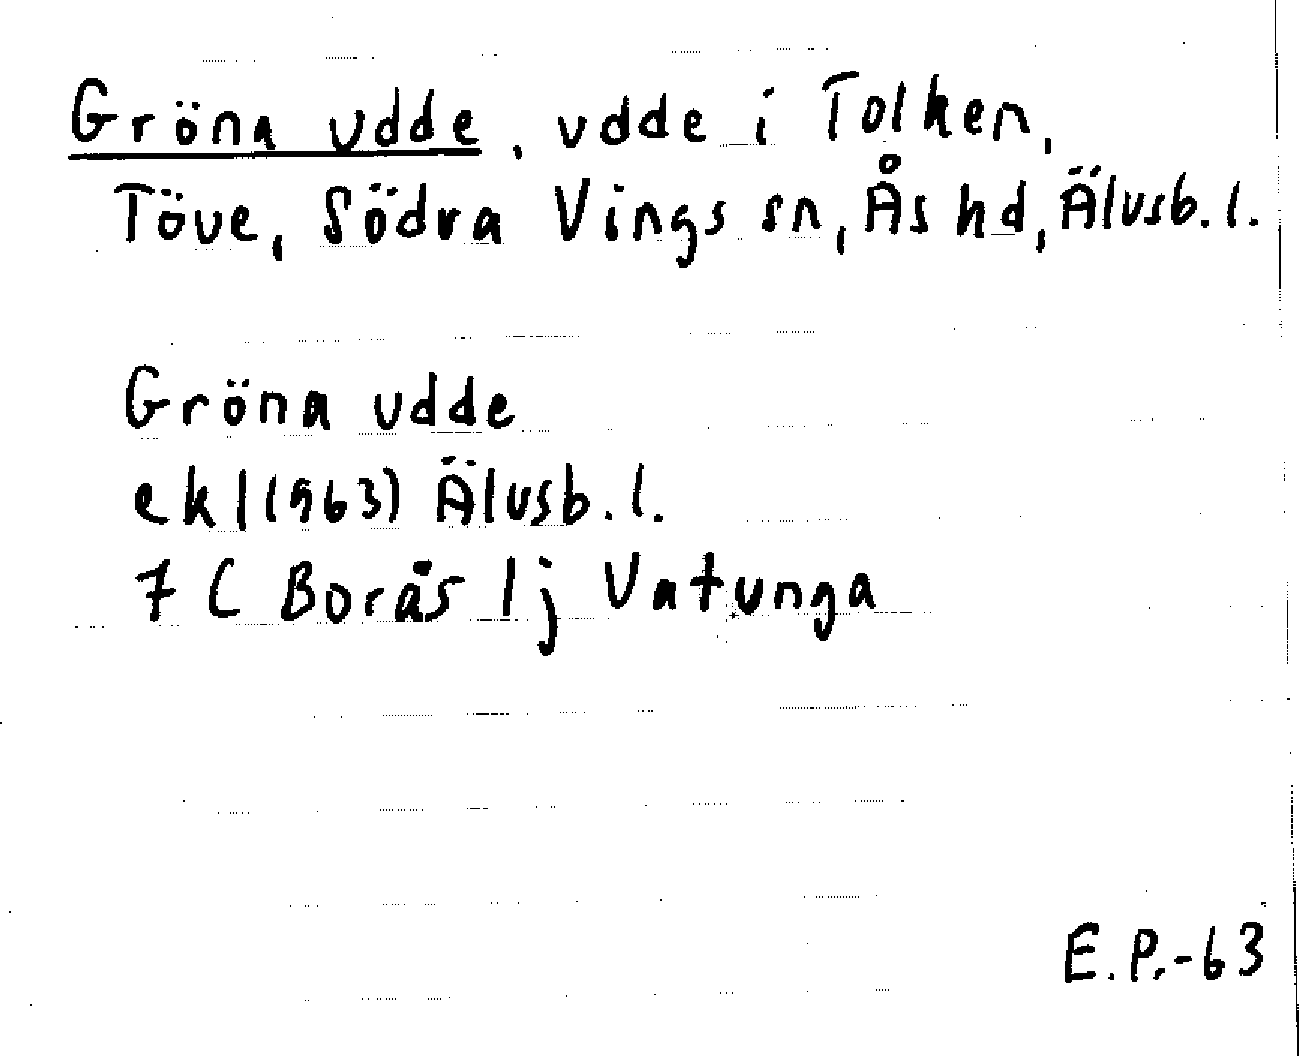 Gröna udde, udde i Tolken,
Töve, Södra Vings sn, Ås hd, Älvsb. l.
Gröna udde
ek 1(1963) Älvsb. l.
7 C Borås 1j Vatunga
E.P.-63